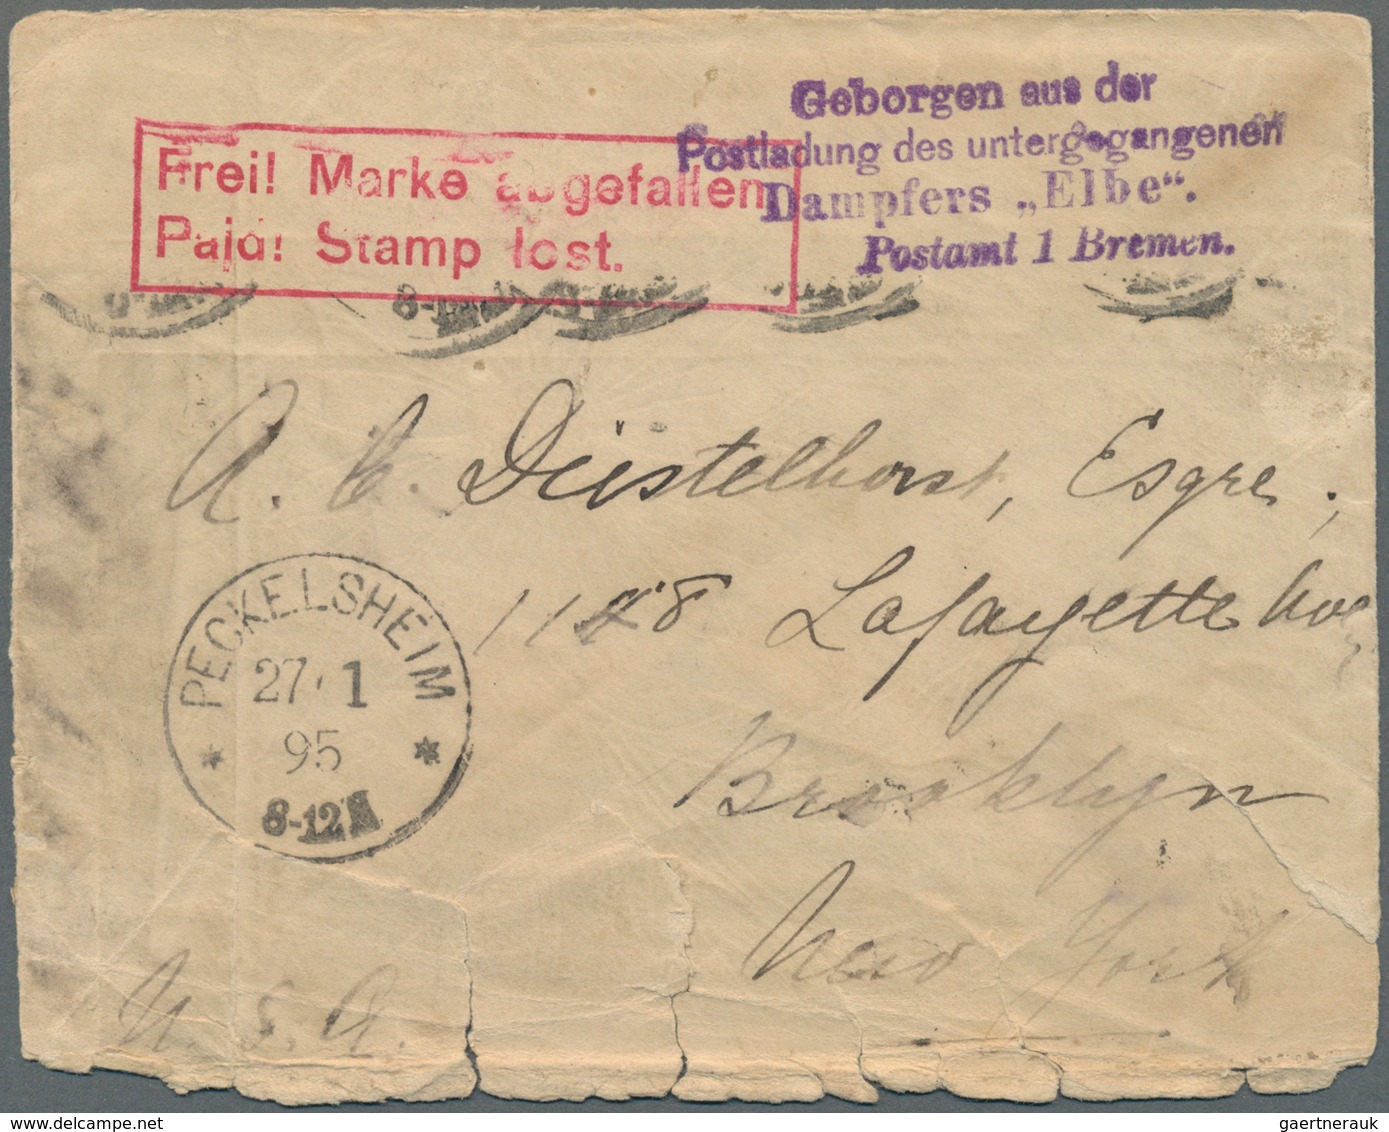 Geborgen aus der
Postladung des untergegangenen
Dampfers „Elbe“.
Postamt 1 Bremen.
Frei! Marke abgefallen
Paid! Stamp lost.
8-12
A. C. Düstelhorst, Esqre,
1128 Lafayette Ave
PECKELSHEIM
27 1
95
8-12 N
Brooklyn
New York
U. S. A.
gaertnerauk
www.delcampe.net